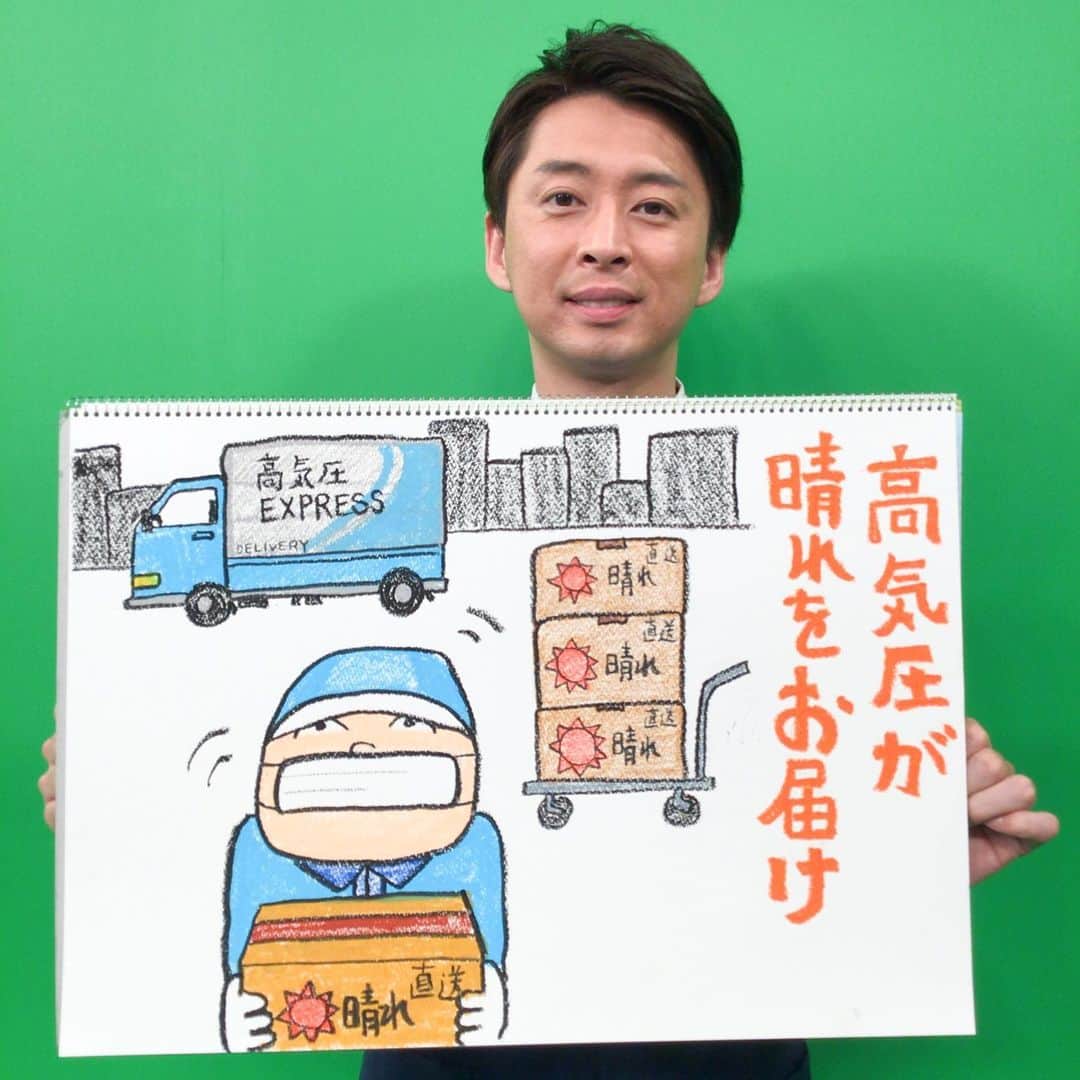 高気圧が
晴れをお届け
高気圧
EXPRESS
DELIVERY
直送
晴れ
直送
晴れ
直送
晴れ
直送
晴れ